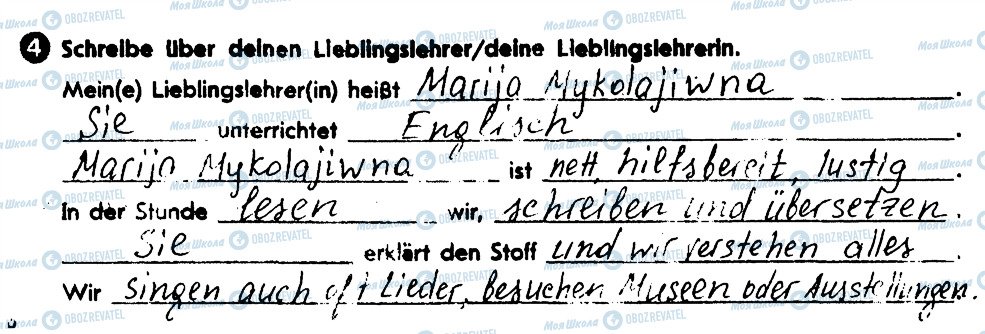 4 Schreibe über deinen Lieblingslehrer/deine Lieblingslehrerin.
Mein(e) Lieblingslehrer(in) heißt Marija Mykolajiwna.
Sie unterrichtet Englisch.
Marija Mykolajiwna ist nett, hilfsbereit, lustig.
In der Stunde lesen wir, schreiben und übersetzen.
Sie erklärt den Stoff und wir verstehen alles.
Wir singen auch oft Lieder, besuchen Museen oder Ausstellungen.